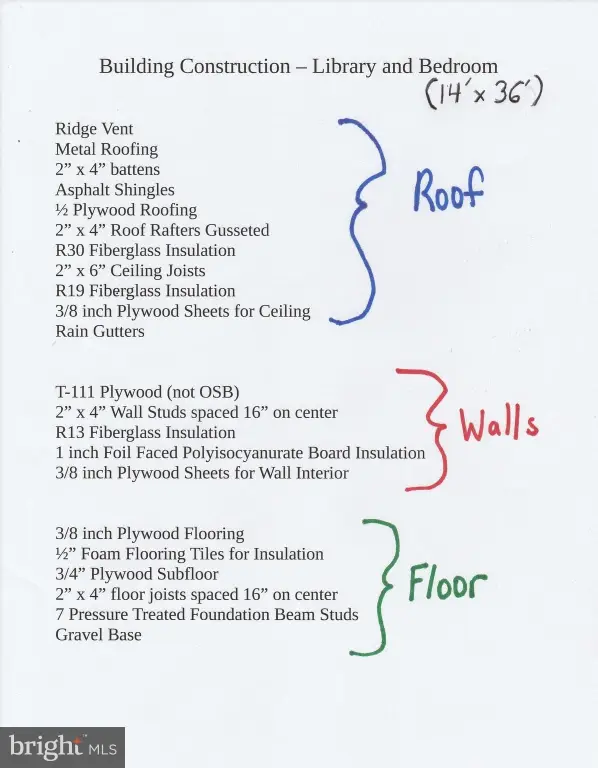 Building Construction – Library and Bedroom
(14' x 36')
Ridge Vent
Metal Roofing
2” x 4” battens
Asphalt Shingles
½ Plywood Roofing
2” x 4” Roof Rafters Gusseted
R30 Fiberglass Insulation
2” x 6” Ceiling Joists
R19 Fiberglass Insulation
3/8 inch Plywood Sheets for Ceiling
Rain Gutters
Roof
T-111 Plywood (not OSB)
2” x 4” Wall Studs spaced 16” on center
R13 Fiberglass Insulation
1 inch Foil Faced Polyisocyanurate Board Insulation
3/8 inch Plywood Sheets for Wall Interior
Walls
3/8 inch Plywood Flooring
½” Foam Flooring Tiles for Insulation
3/4” Plywood Subfloor
2” x 4” floor joists spaced 16” on center
7 Pressure Treated Foundation Beam Studs
Gravel Base
Floor
bright™ MLS